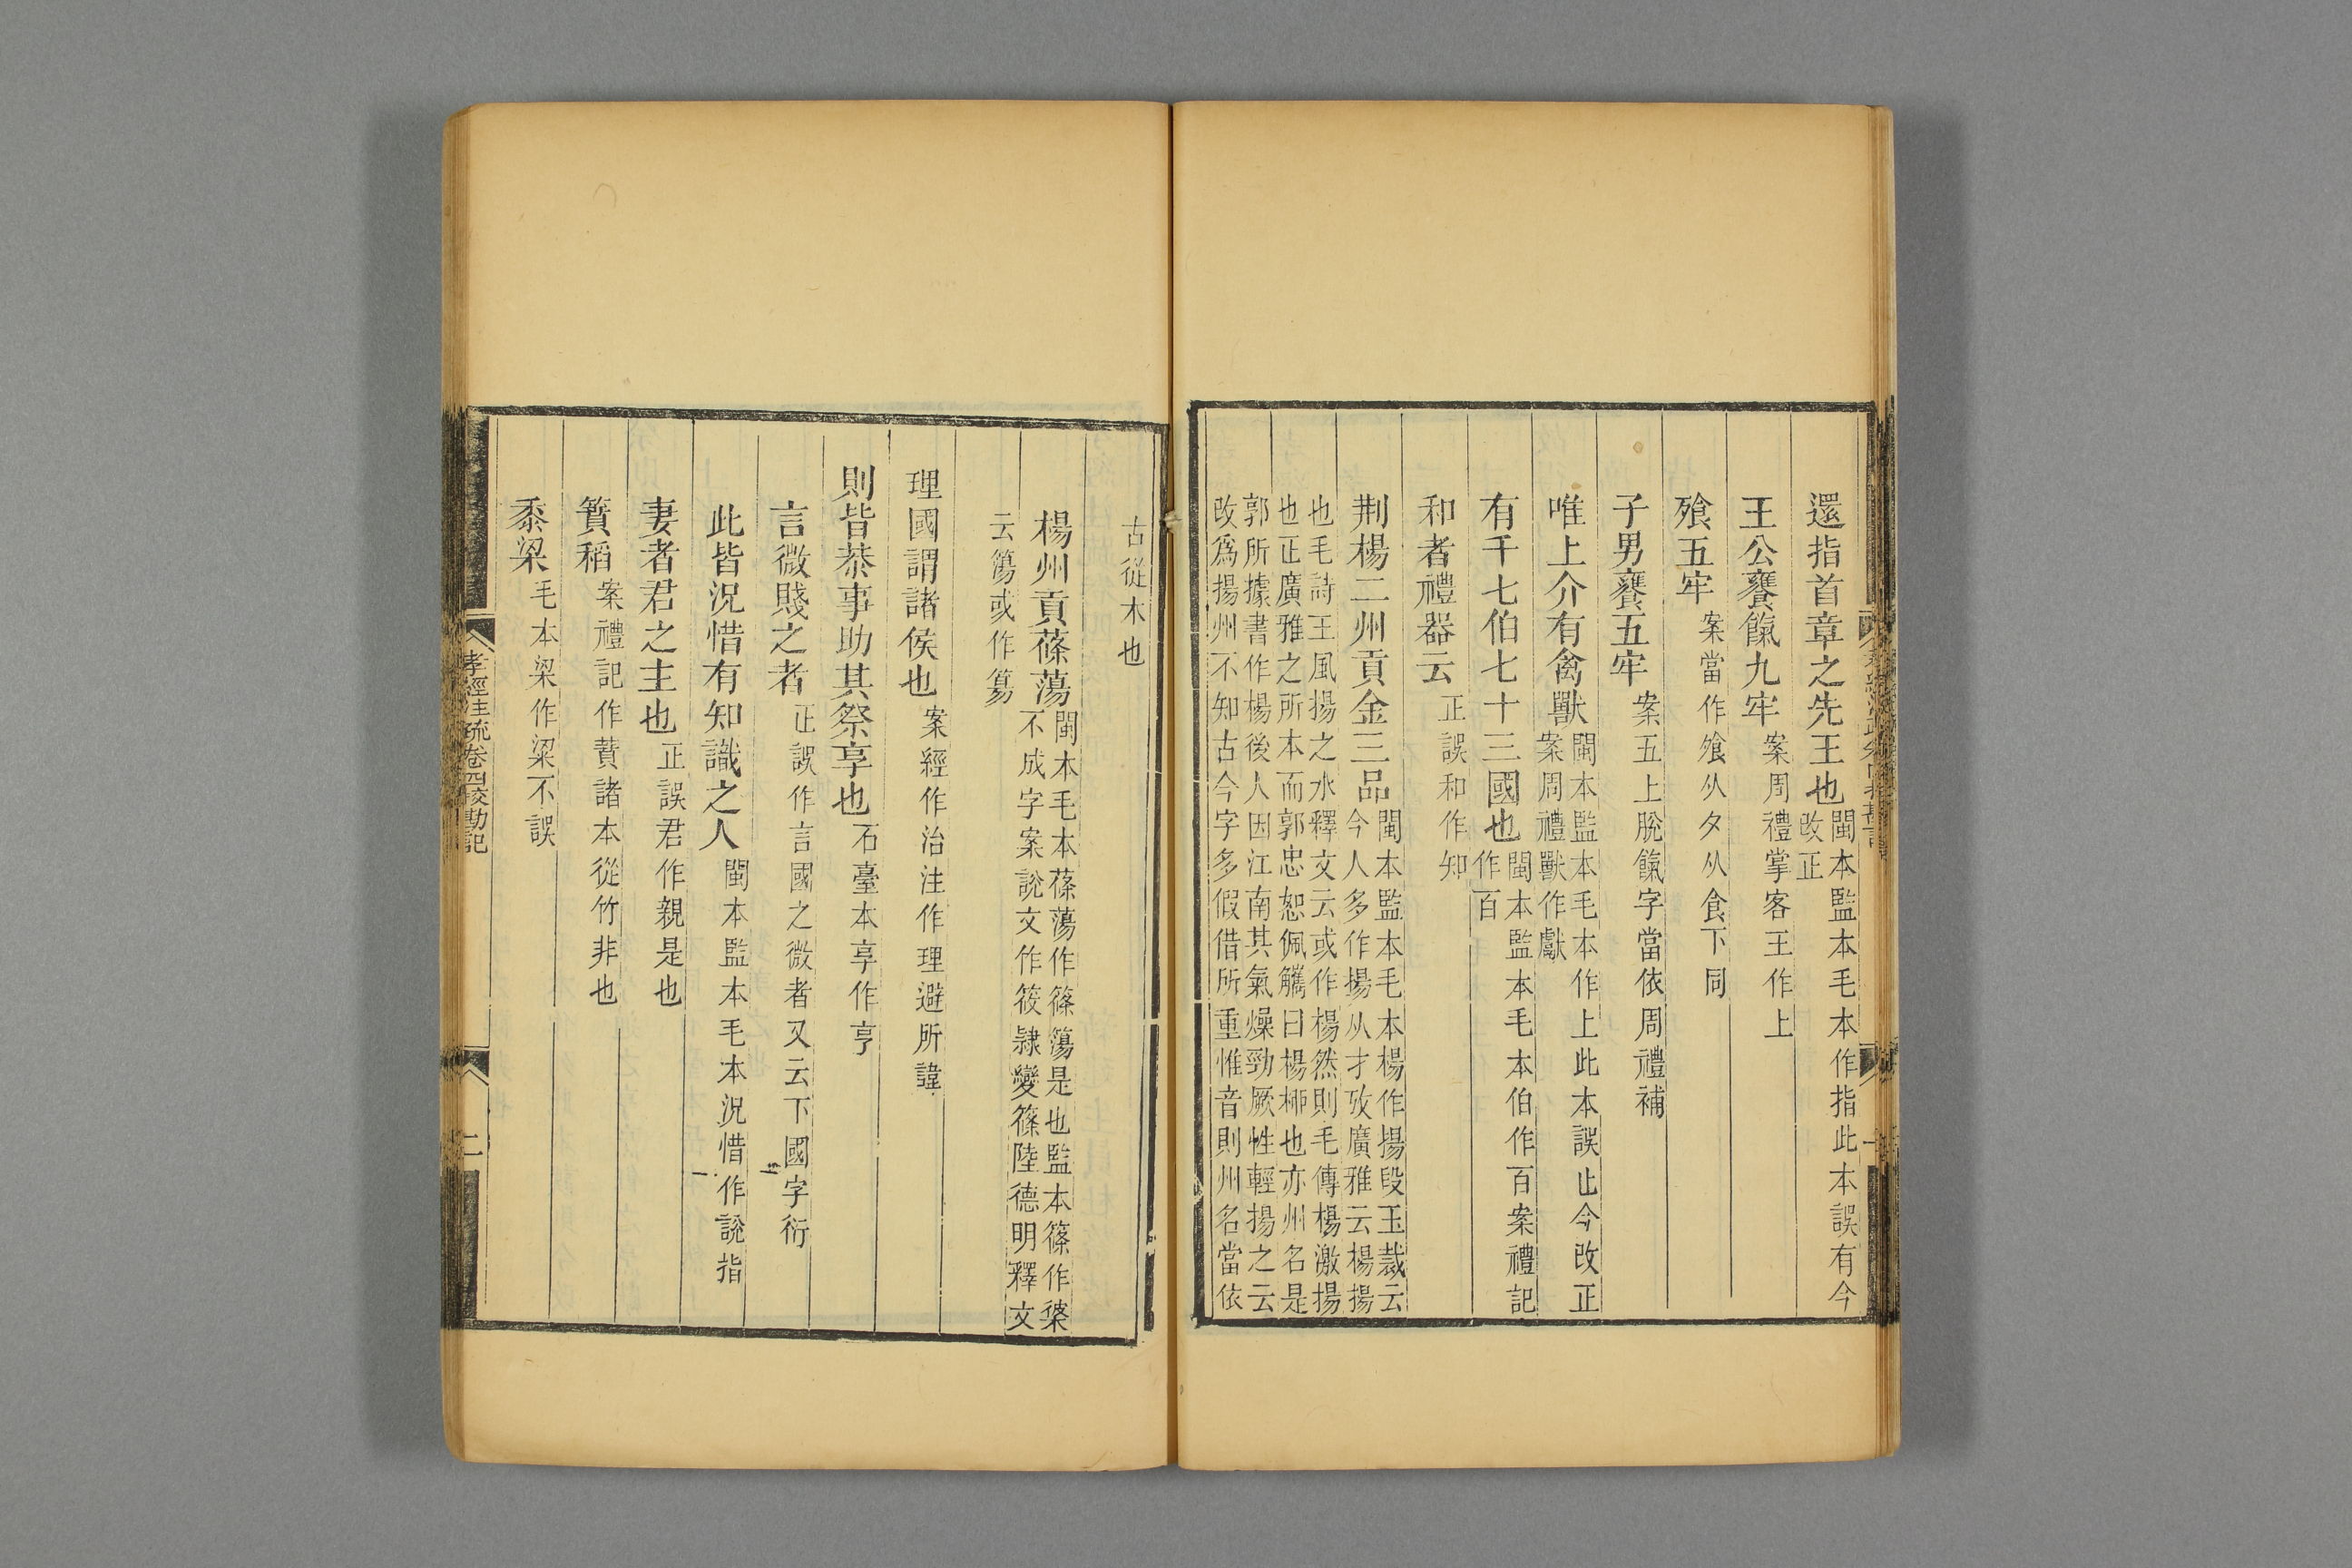 還指首章之先王也閩本監本毛本作指此本誤有今改正
王公饔餼九牢案周禮掌客王作上
飱五牢案當作飧从夕从食下同
子男饔五牢案五上脫餼字當依周禮補
唯上介有禽獸閩本監本毛本作上此本誤止今改正案周禮獸作獻
有千七伯七十三國也閩本監本毛本伯作百案禮記作百
和者禮器云正誤和作知
荆楊二州貢金三品閩本監本毛本楊作揚段玉裁云今人多作揚从才攷廣雅云楊揚
也毛詩王風揚之水釋文云或作楊然則毛傳楊激揚也正廣雅之所本而郭忠恕佩觿曰楊桺也亦州名是
郭所據書作楊後人因江南其氣燥勁厥性輕揚之云改爲揚州不知古今字多假借所重惟音則州名當依
古從木也
楊州貢蓧蕩閩本毛本蓧蕩作篠簜是也監本篠作䈽不成字案說文作筱隷變篠陸德明釋文
云簜或作䈠
理國謂諸侯也案經作治注作理避所諱
則皆恭事助其祭享也石臺本享作亨
言微賤之者正誤作言國之微者又云下國字衍
此皆況惜有知識之人閩本監本毛本況惜作說指
妻者君之主也正誤君作親是也
簀稻案禮記作蕡諸本從竹非也
黍梁毛本梁作粱不誤
孝經注疏卷四校勘記
二